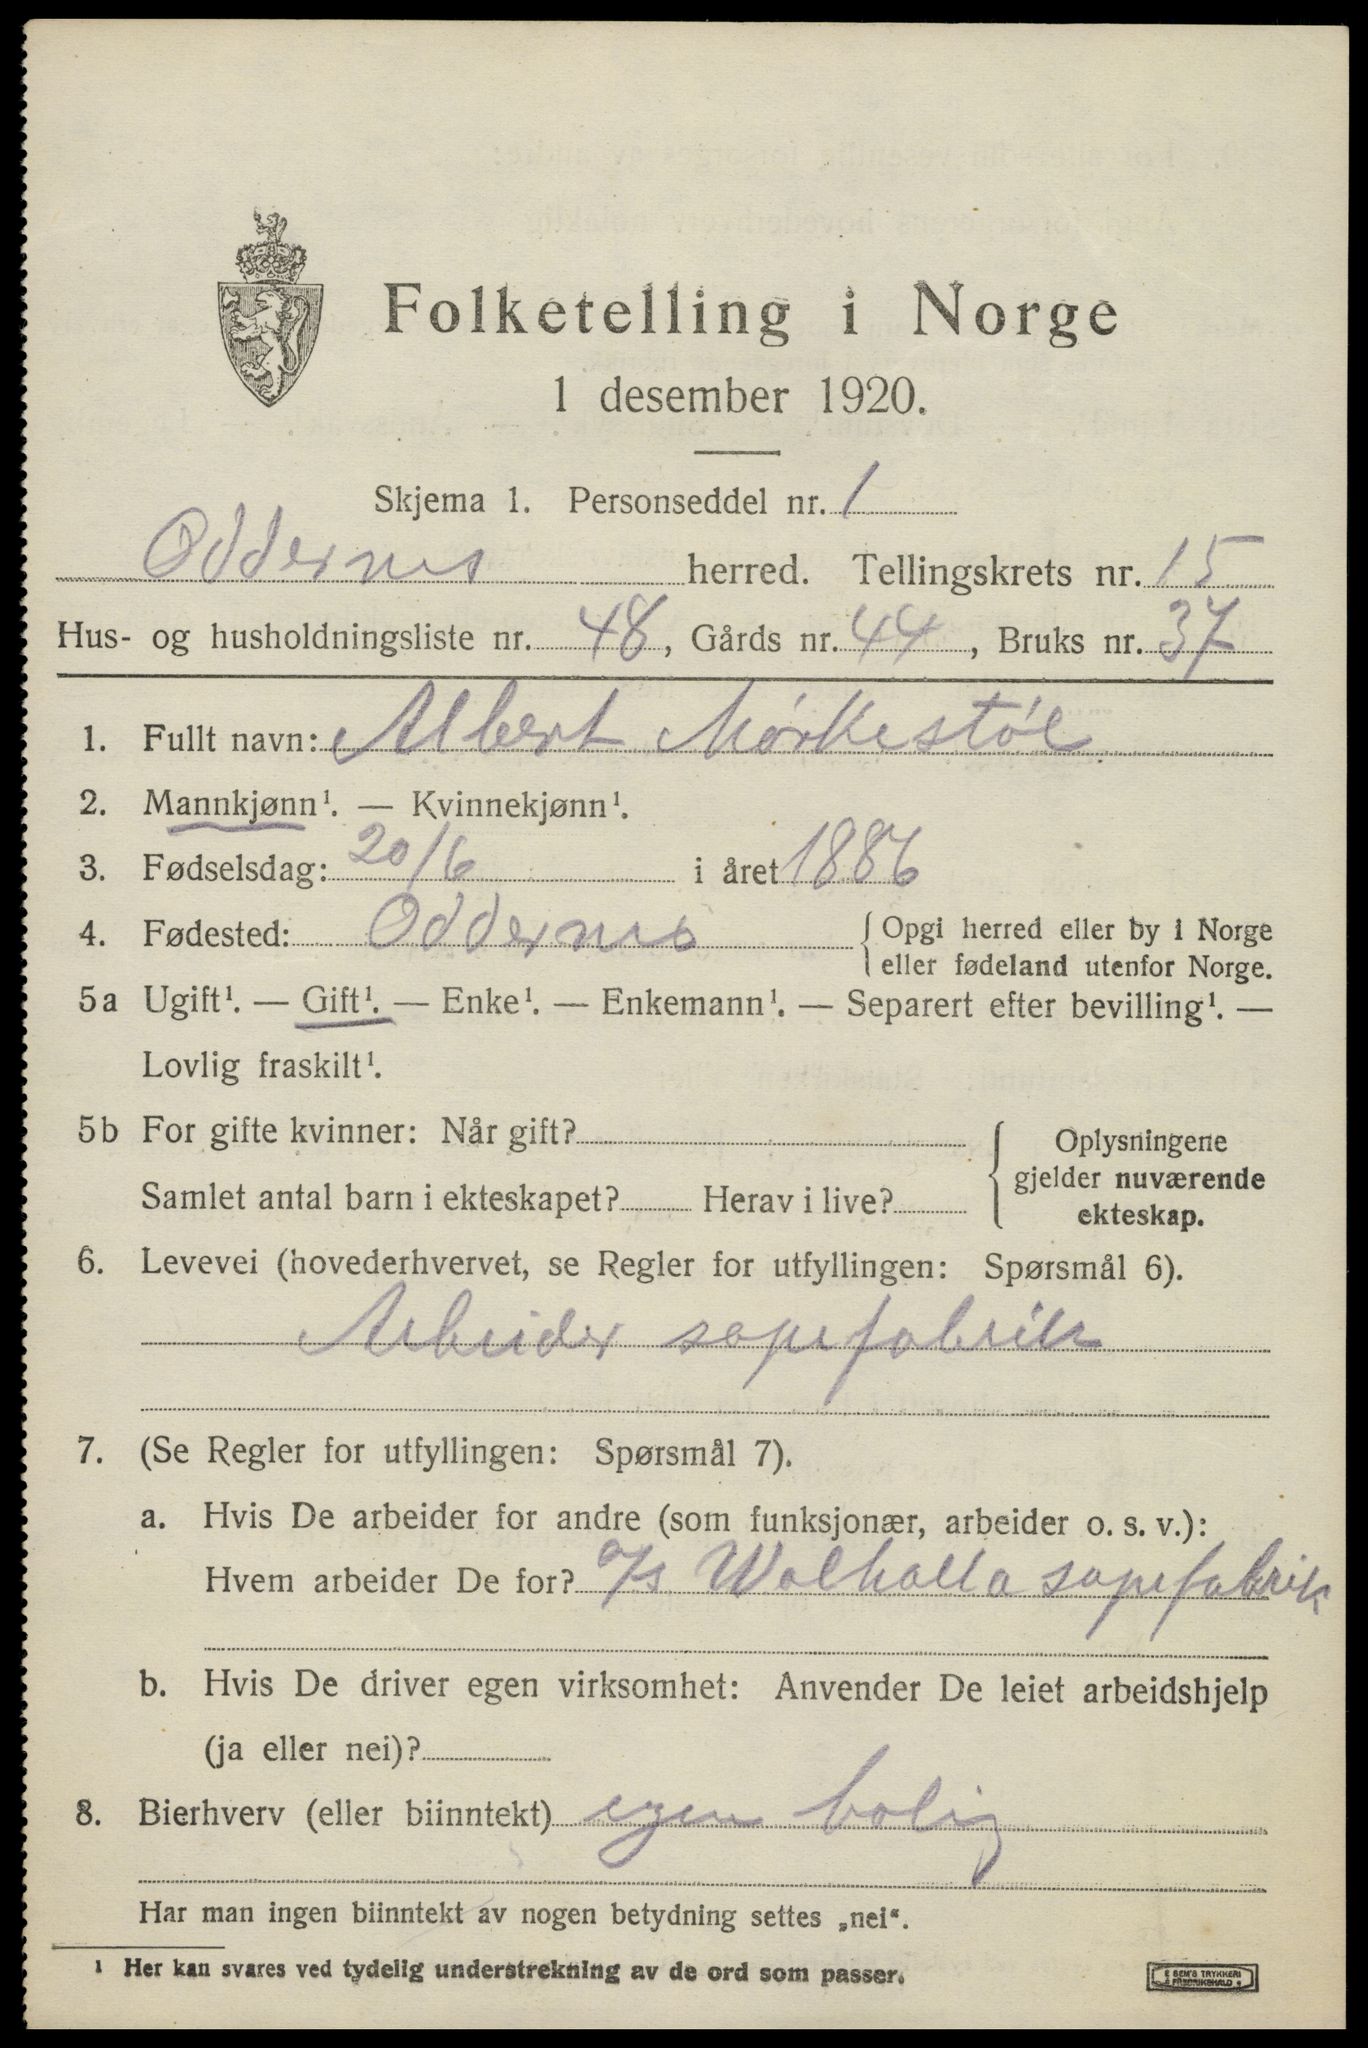 Folketelling i Norge
1 desember 1920.
Skjema 1. Personseddel nr. 1
Oddernes herred. Tellingskrets nr. 15
Hus- og husholdningsliste nr. 48, Gårds nr. 44, Bruks nr. 37
1. Fullt navn: Albert Mørkestøl
2. Mannkjønn¹. — Kvinnekjønn¹.
3. Fødselsdag: 20/6 i året 1886
4. Fødested: Oddernes { Opgi herred eller by i Norge
eller fødeland utenfor Norge.
5a Ugift¹. — Gift¹. — Enke¹. — Enkemann¹. — Separert efter bevilling¹. —
Lovlig fraskilt¹.
5b For gifte kvinner: Når gift?
Samlet antal barn i ekteskapet? Herav i live?
{ Oplysningene
gjelder nuværende
ekteskap.
6. Levevei (hovederhvervet, se Regler for utfyllingen: Spørsmål 6).
Arbeider sapefabrik
7. (Se Regler for utfyllingen: Spørsmål 7).
a. Hvis De arbeider for andre (som funksjonær, arbeider o. s. v.):
Hvem arbeider De for? a/s Walhalla sapefabrik
b. Hvis De driver egen virksomhet: Anvender De leiet arbeidshjelp
(ja eller nei)?
8. Bierhverv (eller biinntekt) egen bolig
Har man ingen biinntekt av nogen betydning settes „nei“.
¹ Her kan svares ved tydelig understrekning av de ord som passer.
SEM'S TRYKKERI
FREDRIKSHALD